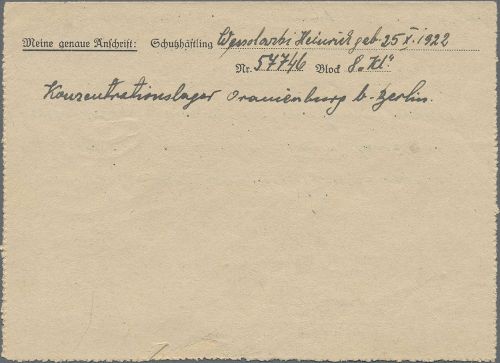 Meine genaue Anschrift: Schutzhäftling Heinrich geb. 25 X. 1922
Nr. 57746 Block 8 „Kl"
Konzentrationslager Oranienburg b. Berlin.